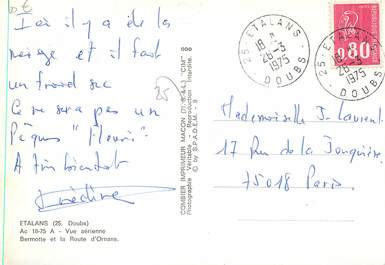 Ici il y a de la
neige et il fait
un froid sec
Ce ne sera pas un
Pâques "fleuri".
A très bientôt
ETALANS (25, Doubs)
Ac 18-75 A - Vue aérienne
Bermotte et la Route d'Ornans.
COMBIER IMPRIMEUR MACON (71-S.-&-L) "CIM"
Photographie Véritable - Reproduction Interdite
© by S.P.A.D.E.M.
25
25 - ETALANS -
18 H
28-3
1975
DOUBS
25 - ETALANS -
18 H
28-3
1975
DOUBS
0,80
Mademoiselle J. Laurent
17 Rue de la Jonquière
75018 Paris